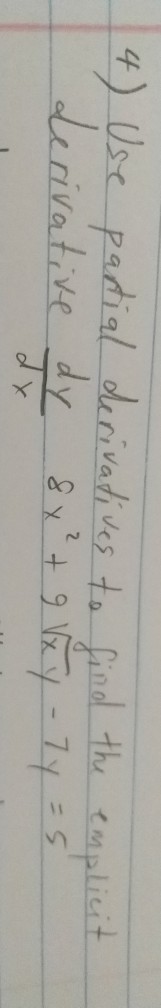 4) Use partial derivatives to find the emplicit
derivative dy/dx 8x² + 9√x y - 7y = 5